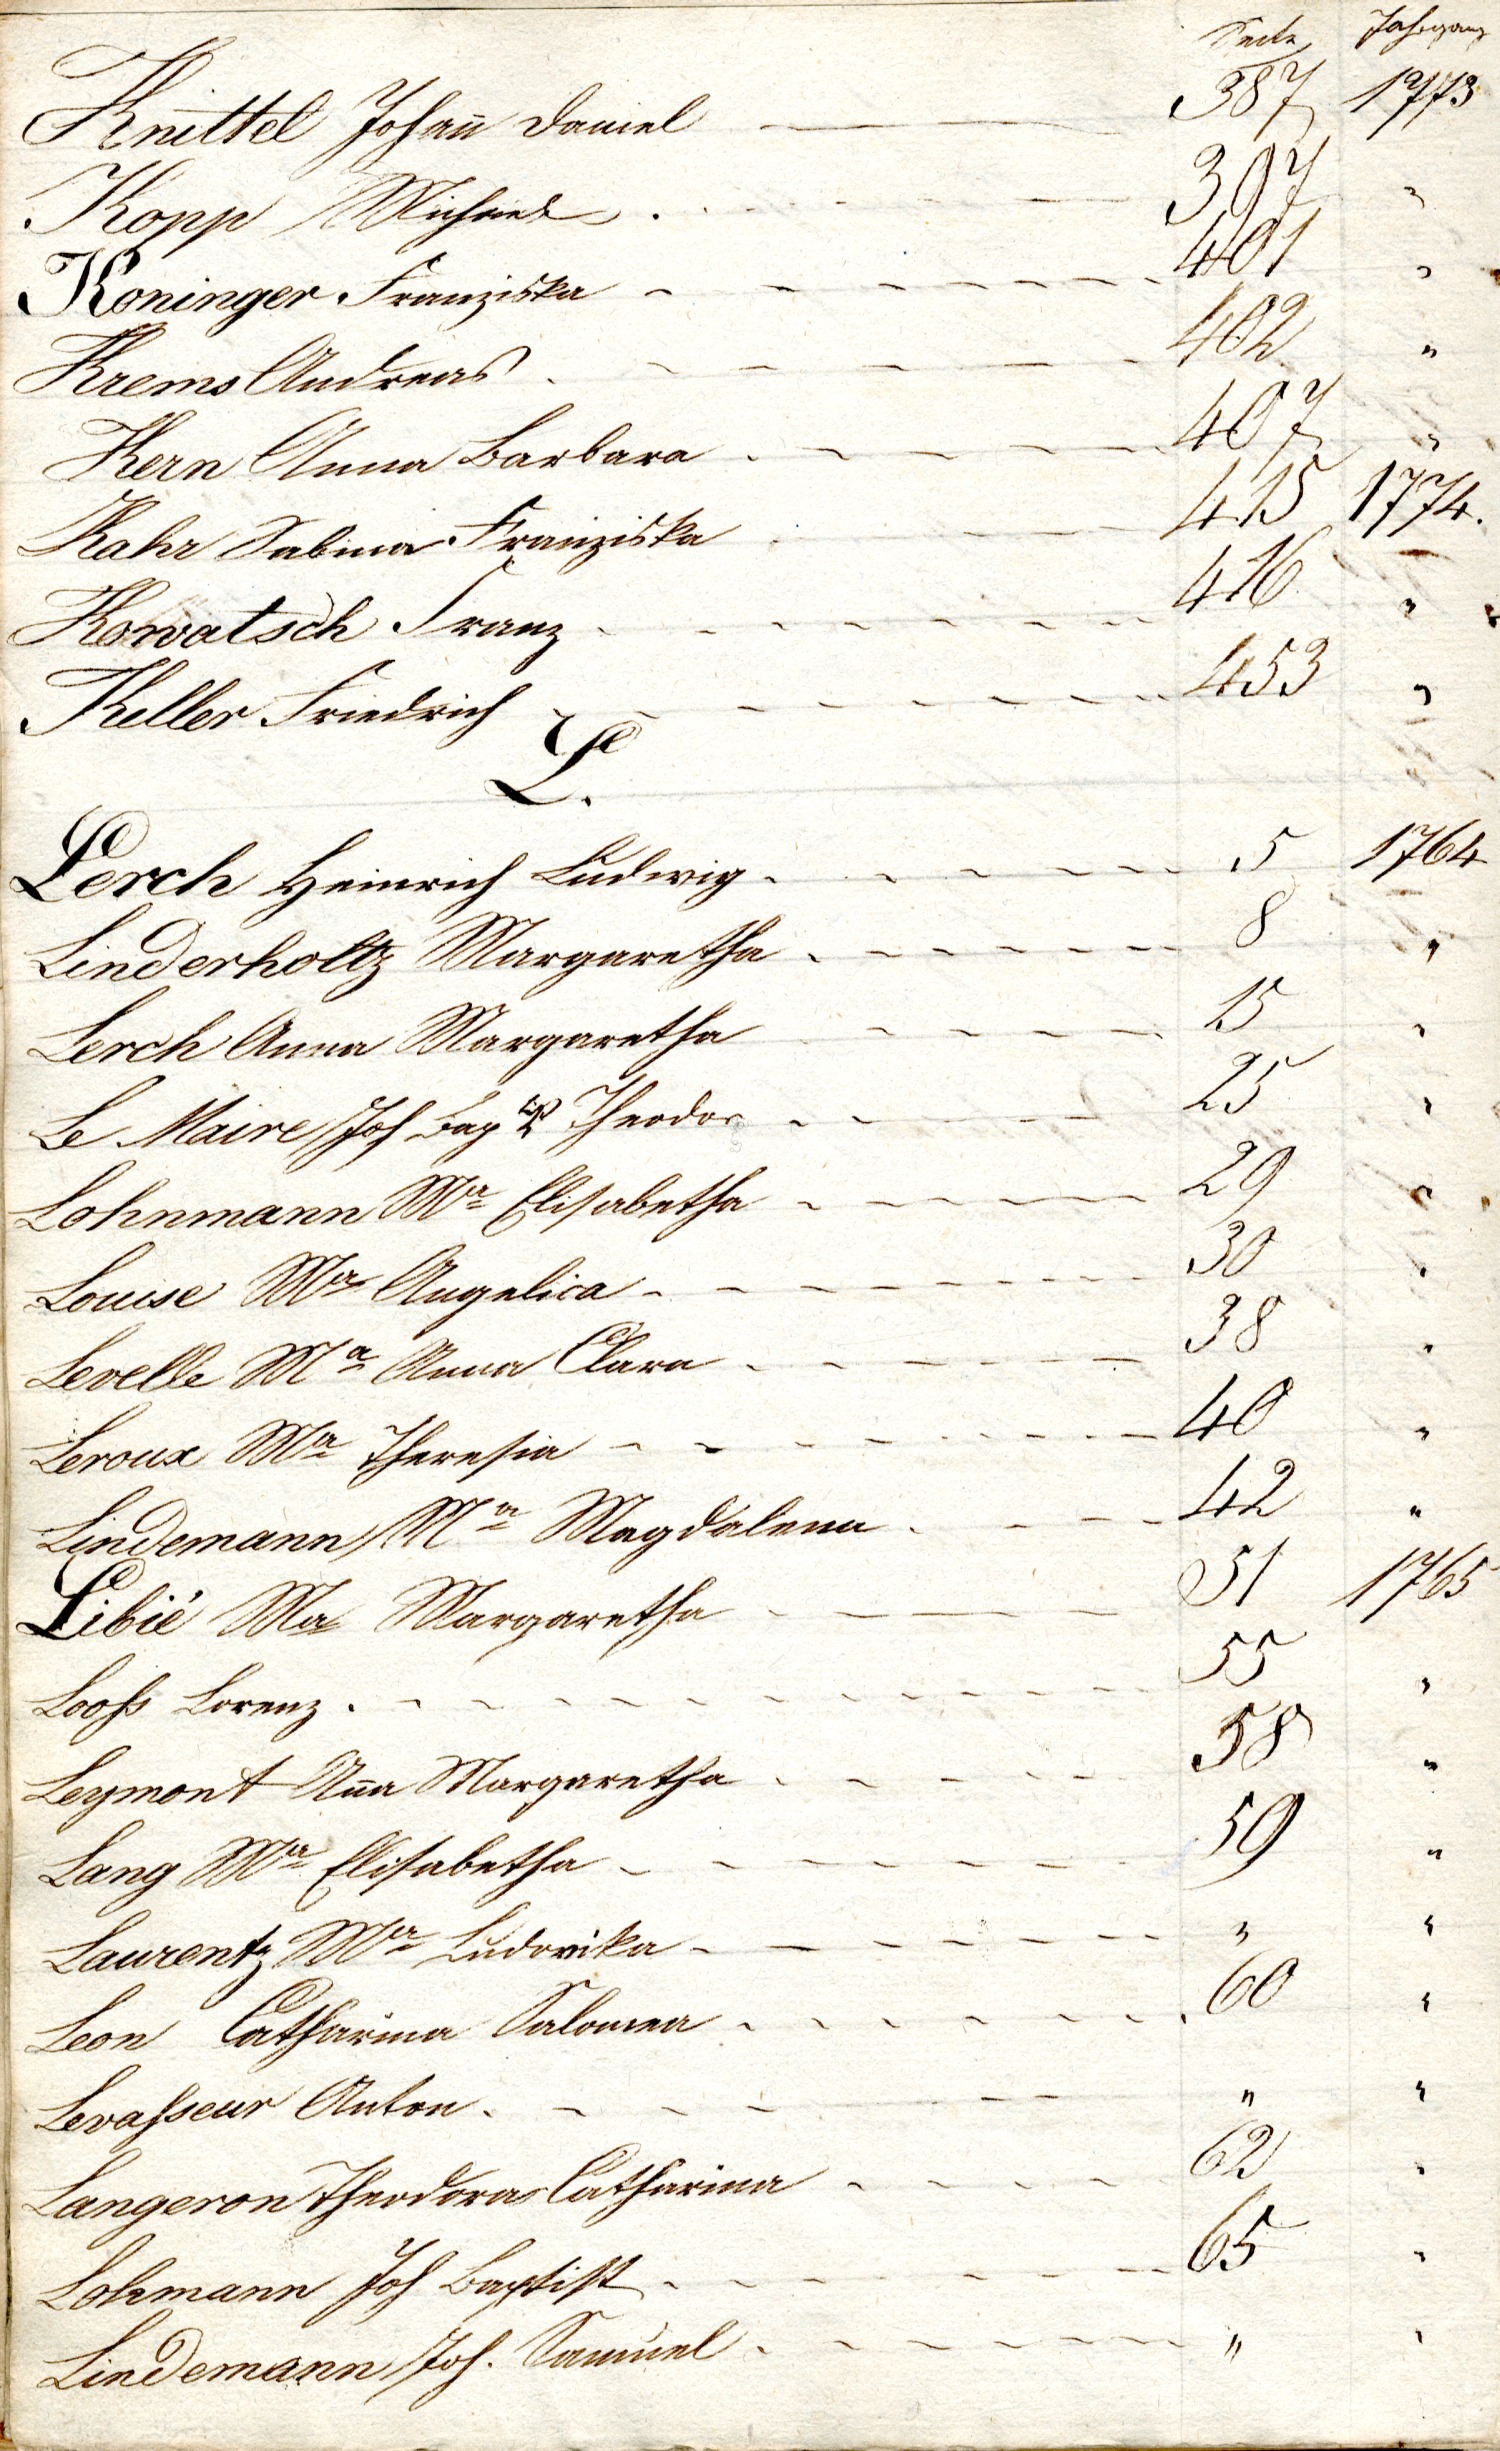 Seite Jahrgang
Knittel Johañ Daniel — 387 1773
Kopp Michael . - - - - 397 "
Koninger Franziska - - - - - 401 "
Krems Andreas . - - - - 402 "
Kern Anna Barbara . - - - - 407 "
Kahr Sabina Franziska . - - - 415 1774.
Kowatsch Franz - - - - - 416 "
Keller Friedrich - - - - - 453 "
L.
Lerch Heinrich Ludwig . - - - - 5 1764
Linderholtz Margaretha . - - - - 8 "
Lerch Anna Margaretha - - - - 15 "
Le Maire Joh Bap Theodor - - - - 25 "
Lohnmann Ma Elisabetha - - - - 29 "
Louise Ma Angelica - - - - - 30 "
Levelle Ma Anna Clara . - - - - 38 "
Leroux Ma Theresia - - - - - 40 "
Lindemann Ma Magdalena . - - - 42 "
Libié Ma Margaretha - - - - 51 1765
Looss Lorenz . - - - - - 55 "
Leymont Aña Margaretha . - - - - 58 "
Lang Ma Elisabetha - - - - - 59 "
Laurentz Ma Ludovika - - - - - " "
Leon Catharina Salomea . - - - - 60 "
Levasseur Anton . - - - - " "
Langeron Theodora Catharina - - - - 62 "
Lohmann Joh Baptist . - - - - 65 "
Lindemann Joh. Samuel . - - - - " "